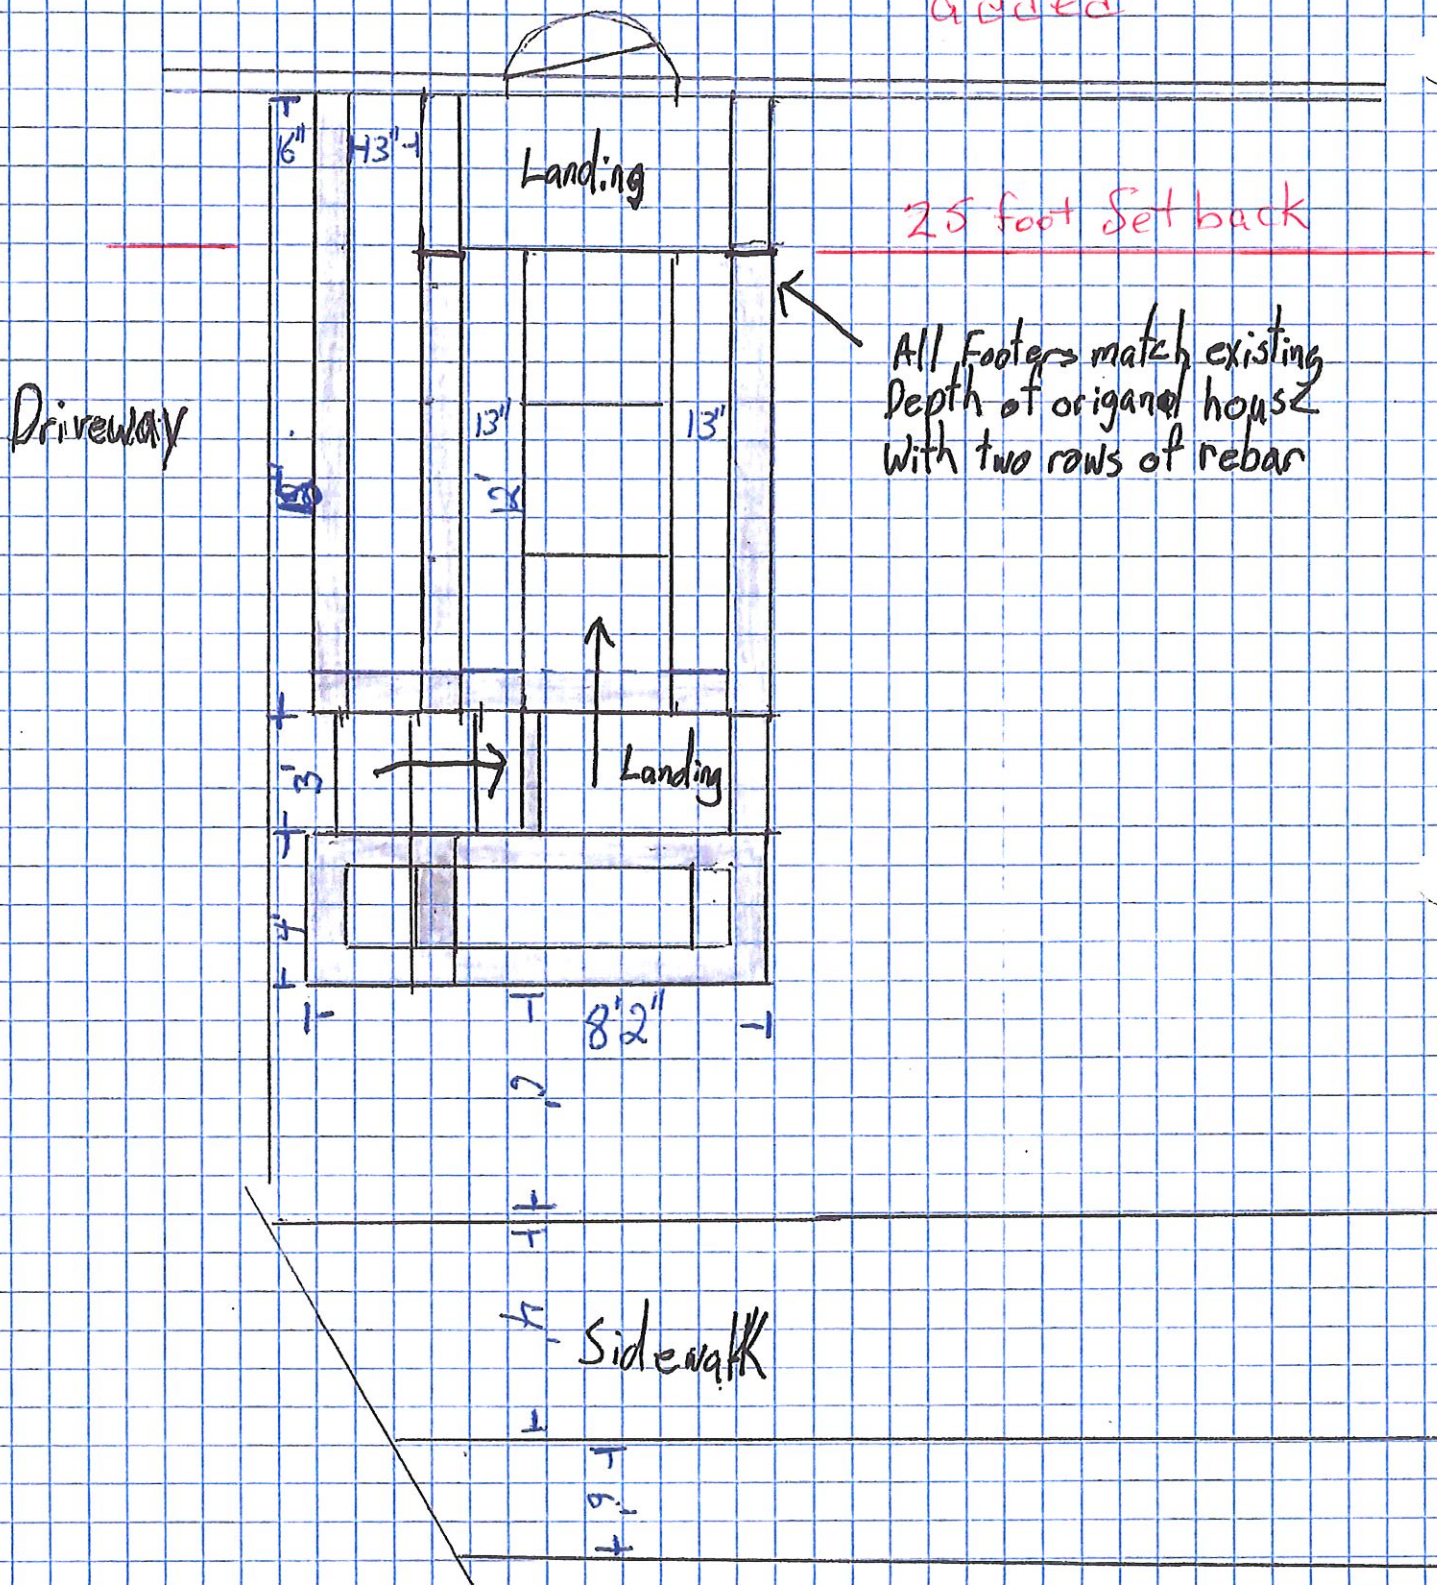 added
6"
13"
Landing
25 foot Set back
All Footers match existing
Depth of origanal house
With two rows of rebar
Driveway
13"
13"
12'
3'
Landing
4'
8'2"
4'
Sidewalk